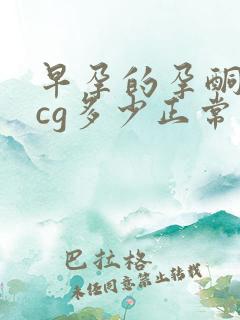 早孕的孕酮
cg多少正常
巴拉格
未经同意禁止转载